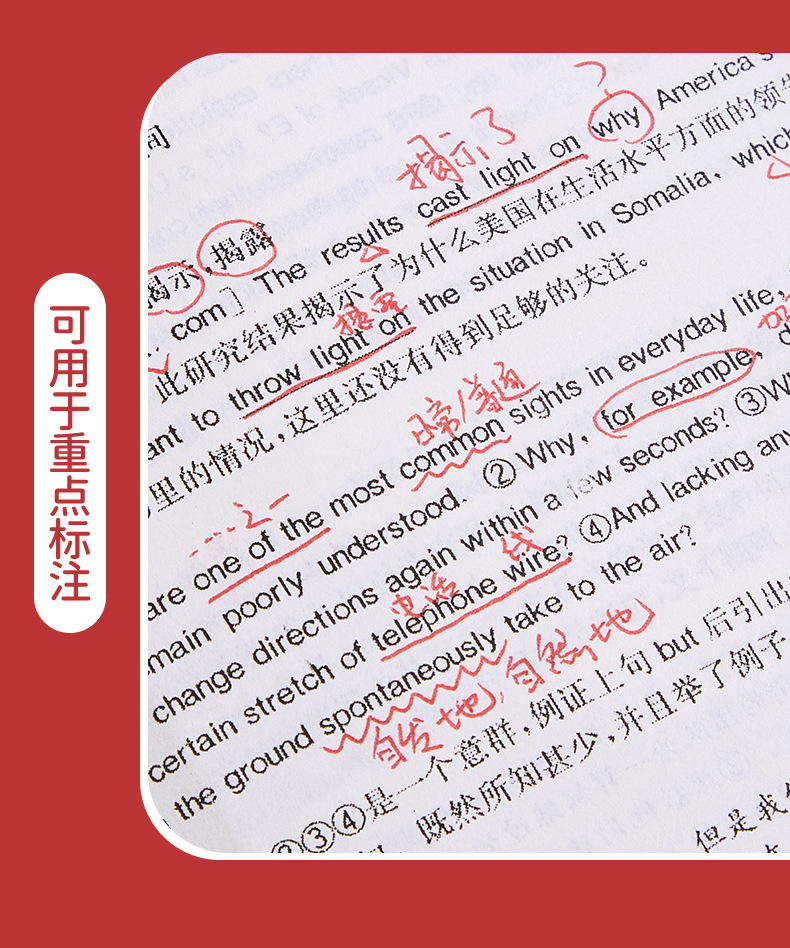 可用于重点标注
词
why America's
揭示了
The results cast light on
揭示,揭露
com] 此研究结果揭示了为什么美国在生活水平方面的领先
the situation in Somalia, which
want to throw light on
里的情况,这里还没有得到足够的关注。
日常/普通
are one of the most common sights in everyday life,
main poorly understood. ② Why, for example,
change directions again within a few seconds? ③
电话 线
certain stretch of telephone wire? ④And lacking any
the ground spontaneously take to the air?
自发地,自然地
②③④是一个意群,例证上句 but 后引出
既然所知甚少,并且举了例子
但是我